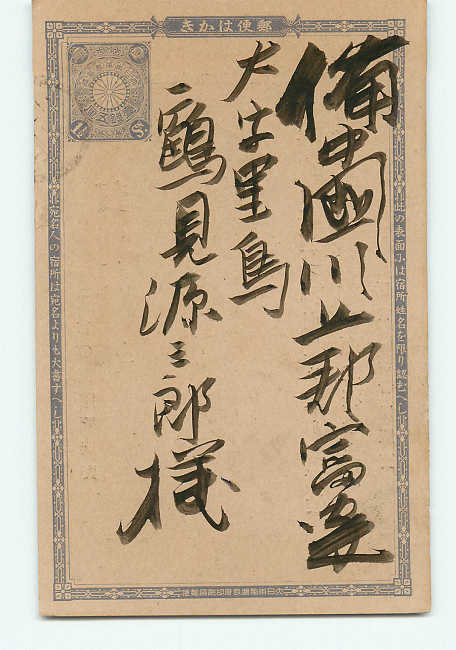 郵便はかき
此の表面には宿所姓名を限り認むへし
備中國川上郡富家
大字黒鳥
鶴見源三郎様
宛名人の宿所は宛名よりも大書すへし
大日本帝國政府印刷局製造